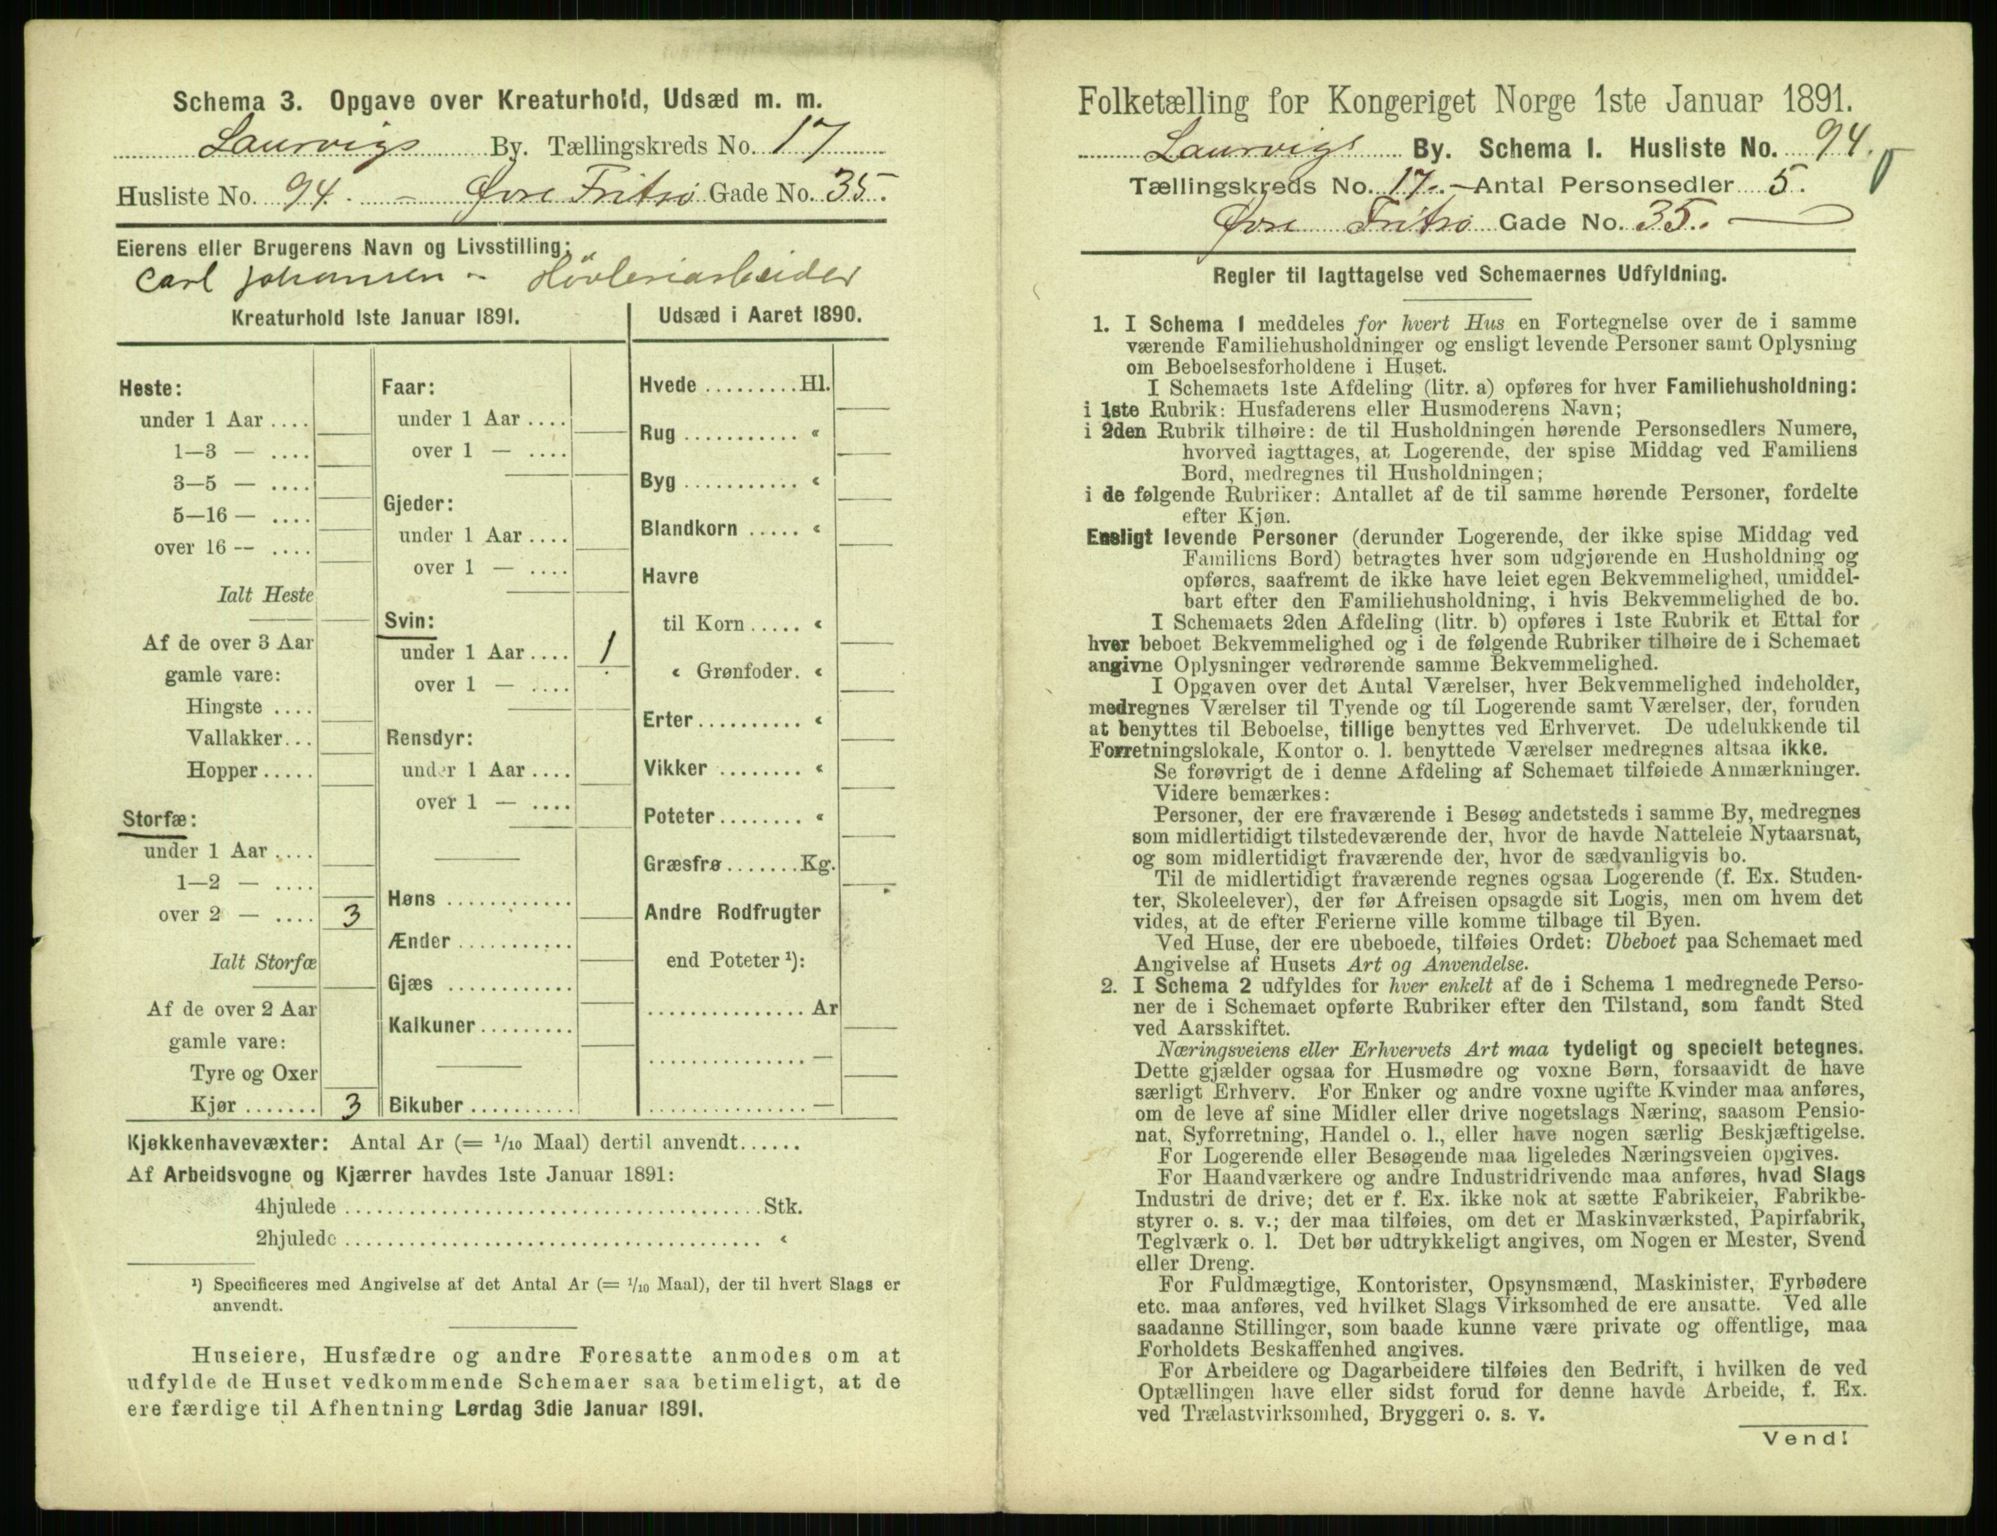 Schema 3. Opgave over Kreaturhold, Udsæd m. m.
Laurvigs By. Tællingskreds No. 17
Husliste No. 94. – Øvre Fritsø Gade No. 35.
Eierens eller Brugerens Navn og Livsstilling:
Carl Johansen – Høvleriarbeider
Kreaturhold 1ste Januar 1891.
Heste:
under 1 Aar ....
1—3 — ....
3—5 — ....
5—16 — ....
over 16 -- ....
Ialt Heste
Af de over 3 Aar
gamle vare:
Hingste ....
Vallakker...
Hopper.....
Storfæ:
under 1 Aar ....
1—2 — ....
over 2 — .... 3
Ialt Storfæ
Af de over 2 Aar
gamle vare:
Tyre og Oxer
Kjør ....... 3
Faar:
under 1 Aar ....
over 1 — ....
Gjeder:
under 1 Aar ....
over 1 — ....
Svin:
under 1 Aar .... 1.
over 1 — ....
Rensdyr:
under 1 Aar ....
over 1 — ....
Høns ...........
Ænder...........
Gjæs ...........
Kalkuner.........
Bikuber ..........
Udsæd i Aaret 1890.
Hvede .........Hl.
Rug ........... «
Byg ........... «
Blandkorn ..... «
Havre
til Korn ..... «
« Grønfoder. «
Erter.......... «
Vikker ........ «
Poteter........ «
Græsfrø.......Kg.
Andre Rodfrugter
end Poteter ¹):
............... Ar
............... —
............... —
Kjøkkenhavevæxter: Antal Ar (= 1/10 Maal) dertil anvendt......
Af Arbeidsvogne og Kjærrer havdes 1ste Januar 1891:
4hjulede ....................................... Stk.
2hjulede ....................................... «
¹) Specificeres med Angivelse af det Antal Ar (= 1/10 Maal), der til hvert Slags er
anvendt.
Huseiere, Husfædre og andre Foresatte anmodes om at
udfylde de Huset vedkommende Schemaer saa betimeligt, at de
ere færdige til Afhentning Lørdag 3die Januar 1891.
Folketælling for Kongeriget Norge 1ste Januar 1891.
Laurvigs By. Schema 1. Husliste No. 94.
Tællingskreds No. 17. – Antal Personsedler 5.
Øvre Fritsø Gade No. 35. —
Regler til Iagttagelse ved Schemaernes Udfyldning.
1. I Schema 1 meddeles for hvert Hus en Fortegnelse over de i samme
værende Familiehusholdninger og ensligt levende Personer samt Oplysning
om Beboelsesforholdene i Huset.
I Schemaets 1ste Afdeling (litr. a) opføres for hver Familiehusholdning:
i 1ste Rubrik: Husfaderens eller Husmoderens Navn;
i 2den Rubrik tilhøire: de til Husholdningen hørende Personsedlers Numere,
hvorved iagttages, at Logerende, der spise Middag ved Familiens
Bord, medregnes til Husholdningen;
i de følgende Rubriker: Antallet af de til samme hørende Personer, fordelte
efter Kjøn.
Ensligt levende Personer (derunder Logerende, der ikke spise Middag ved
Familiens Bord) betragtes hver som udgjørende en Husholdning og
opføres, saafremt de ikke have leiet egen Bekvemmelighed, umiddel-
bart efter den Familiehusholdning, i hvis Bekvemmelighed de bo.
I Schemaets 2den Afdeling (litr. b) opføres i 1ste Rubrik et Ettal for
hver beboet Bekvemmelighed og i de følgende Rubriker tilhøire de i Schemaet
angivne Oplysninger vedrørende samme Bekvemmelighed.
I Opgaven over det Antal Værelser, hver Bekvemmelighed indeholder,
medregnes Værelser til Tyende og til Logerende samt Værelser, der, foruden
at benyttes til Beboelse, tillige benyttes ved Erhvervet. De udelukkende til
Forretningslokale, Kontor o. l. benyttede Værelser medregnes altsaa ikke.
Se forøvrigt de i denne Afdeling af Schemaet tilføiede Anmærkninger.
Videre bemærkes:
Personer, der ere fraværende i Besøg andetsteds i samme By, medregnes
som midlertidigt tilstedeværende der, hvor de havde Natteleie Nytaarsnat,
og som midlertidigt fraværende der, hvor de sædvanligvis bo.
Til de midlertidigt fraværende regnes ogsaa Logerende (f. Ex. Studen-
ter, Skoleelever), der før Afreisen opsagde sit Logis, men om hvem det
vides, at de efter Ferierne ville komme tilbage til Byen.
Ved Huse, der ere ubeboede, tilføies Ordet: Ubeboet paa Schemaet med
Angivelse af Husets Art og Anvendelse.
2. I Schema 2 udfyldes for hver enkelt af de i Schema 1 medregnede Perso-
ner de i Schemaet opførte Rubriker efter den Tilstand, som fandt Sted
ved Aarsskiftet.
Næringsveiens eller Erhvervets Art maa tydeligt og specielt betegnes.
Dette gjælder ogsaa for Husmødre og voxne Børn, forsaavidt de have
særligt Erhverv. For Enker og andre voxne ugifte Kvinder maa anføres,
om de leve af sine Midler eller drive nogetslags Næring, saasom Pensio-
nat, Syforretning, Handel o. l., eller have nogen særlig Beskjæftigelse.
For Logerende eller Besøgende maa ligeledes Næringsveien opgives.
For Haandværkere og andre Industridrivende maa anføres, hvad Slags
Industri de drive; det er f. Ex. ikke nok at sætte Fabrikeier, Fabrikbe-
styrer o. s. v.; der maa tilføies, om det er Maskinværksted, Papirfabrik,
Teglværk o. l. Det bør udtrykkeligt angives, om Nogen er Mester, Svend
eller Dreng.
For Fuldmægtige, Kontorister, Opsynsmænd, Maskinister, Fyrbødere
etc. maa anføres, ved hvilket Slags Virksomhed de ere ansatte. Ved alle
saadanne Stillinger, som baade kunne være private og offentlige, maa
Forholdets Beskaffenhed angives.
For Arbeidere og Dagarbeidere tilføies den Bedrift, i hvilken de ved
Optællingen have eller sidst forud for denne havde Arbeide, f. Ex.
ved Trælastvirksomhed, Bryggeri o. s. v.
Vend!